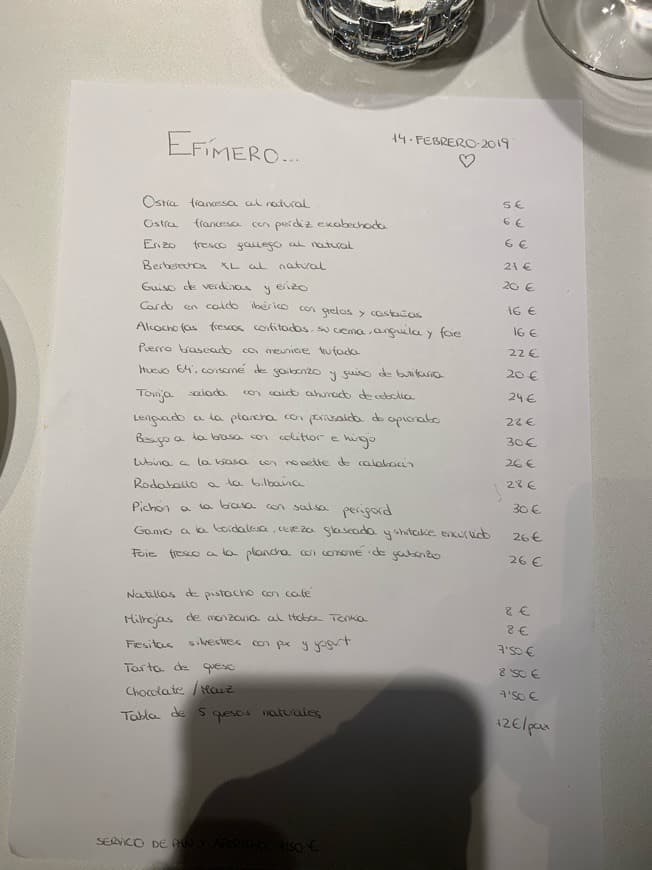 EFÍMERO...
14·FEBRERO·2019
♡
Ostra francesa al natural 5 €
Ostra francesa con perdiz escabechada 6 €
Erizo fresco gallego al natural 6 €
Berberechos XL al natural 21 €
Guiso de verdinas y erizo 20 €
Cardo en caldo ibérico con grelos y castañas 16 €
Alcachofas frescas confitadas, su crema, anguila y foie 16 €
Puerro braseado con meuniere trufada 22 €
Huevo 64º, consomé de garbanzo y guiso de 20 €
Torrija salada con caldo ahumado de cebolla 24 €
Lenguado a la plancha con de apionabo 28 €
Besugo a la brasa con coliflor e hinojo 30 €
Lubina a la brasa con noisette de calabacín 26 €
Rodaballo a la bilbaína 28 €
Pichón a la brasa con salsa perigord 30 €
Gamo a la bordalesa, cereza glaseada y shitake 26 €
Foie fresco a la plancha con consomé de garbanzo 26 €
Natillas de pistacho con café 8 €
Milhojas de manzana al Haba Tonka 8 €
Fresitas silvestres con px y yogurt 7'50 €
Tarta de queso 8'50 €
Chocolate / Maíz 7'50 €
Tabla de 5 quesos naturales 12 €/pax
SERVICIO DE PAN Y APERITIVO €